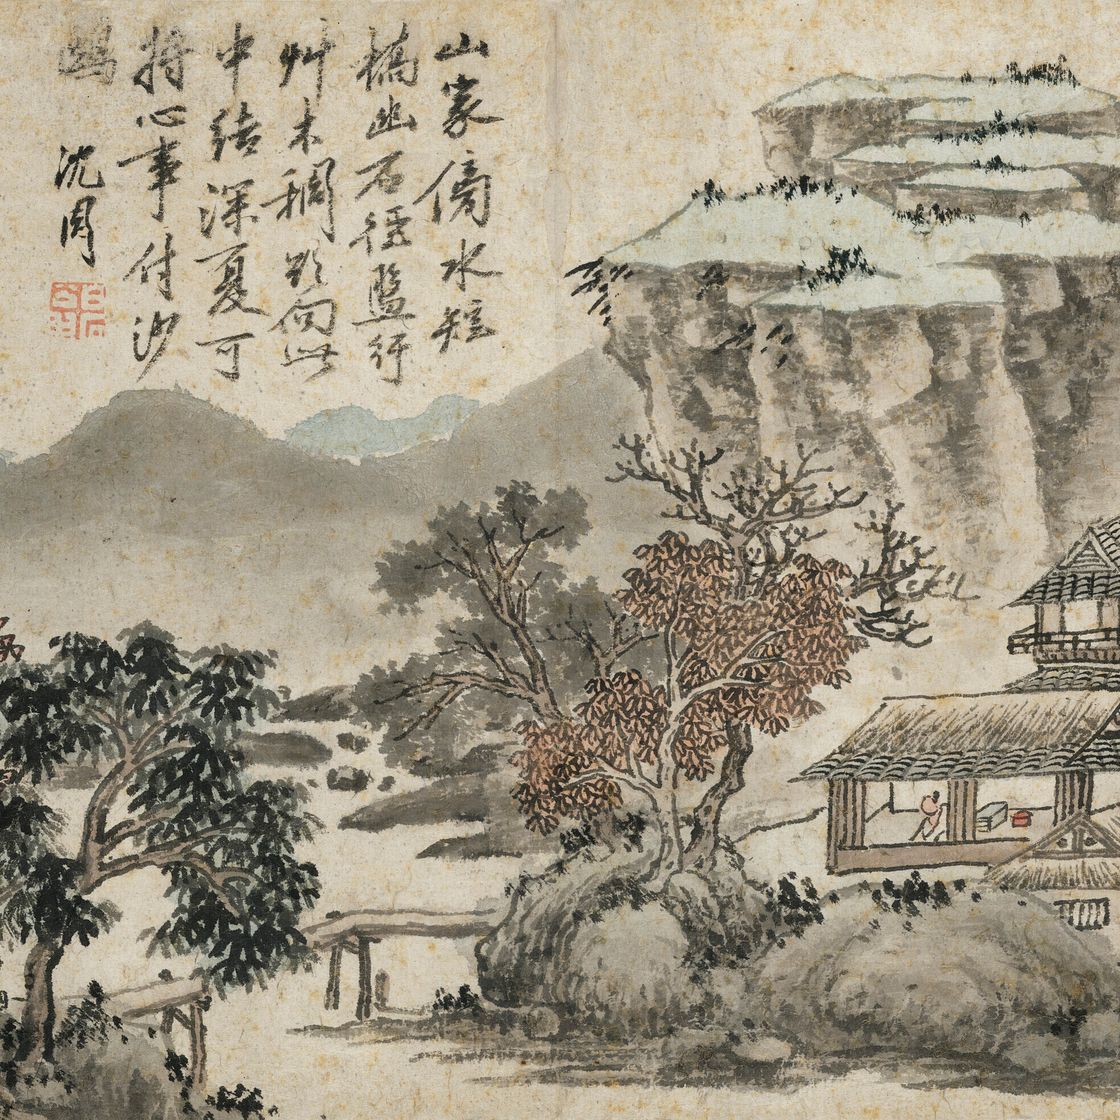 山家傍水短
橋幽石徑盤紆
艸木稠欲向此
中結深夏可
將心事付沙
鷗
沈周